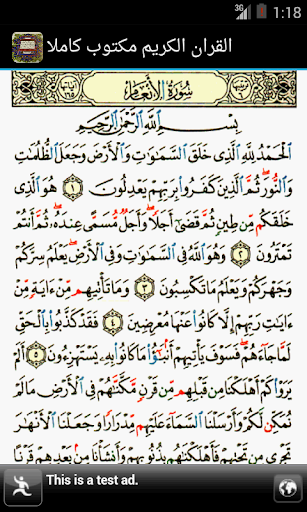 3G 1:18
القران الكريم مكتوب كاملا
سُورَةُ الأَنْعَامِ
بِسْمِ ٱللَّهِ ٱلرَّحْمَٰنِ ٱلرَّحِيمِ
ٱلْحَمْدُ لِلَّهِ ٱلَّذِى خَلَقَ ٱلسَّمَٰوَٰتِ وَٱلْأَرْضَ وَجَعَلَ ٱلظُّلُمَٰتِ
وَٱلنُّورَ ثُمَّ ٱلَّذِينَ كَفَرُوا۟ بِرَبِّهِمْ يَعْدِلُونَ ١ هُوَ ٱلَّذِى
خَلَقَكُم مِّن طِينٍ ثُمَّ قَضَىٰٓ أَجَلًا وَأَجَلٌ مُّسَمًّى عِندَهُۥ ثُمَّ أَنتُمْ
تَمْتَرُونَ ٢ وَهُوَ ٱللَّهُ فِى ٱلسَّمَٰوَٰتِ وَفِى ٱلْأَرْضِ يَعْلَمُ سِرَّكُمْ
وَجَهْرَكُمْ وَيَعْلَمُ مَا تَكْسِبُونَ ٣ وَمَا تَأْتِيهِم مِّنْ ءَايَةٍ مِّنْ
ءَايَٰتِ رَبِّهِمْ إِلَّا كَانُوا۟ عَنْهَا مُعْرِضِينَ ٤ فَقَدْ كَذَّبُوا۟ بِٱلْحَقِّ
لَمَّا جَآءَهُمْ فَسَوْفَ يَأْتِيهِمْ أَنۢبَٰٓؤُا۟ مَا كَانُوا۟ بِهِۦ يَسْتَهْزِءُونَ ٥ أَلَمْ
يَرَوْا۟ كَمْ أَهْلَكْنَا مِن قَبْلِهِم مِّن قَرْنٍ مَّكَّنَّٰهُمْ فِى ٱلْأَرْضِ مَا لَمْ
نُمَكِّن لَّكُمْ وَأَرْسَلْنَا ٱلسَّمَآءَ عَلَيْهِم مِّدْرَارًا وَجَعَلْنَا ٱلْأَنْهَٰرَ
تَجْرِى مِن تَحْتِهِمْ فَأَهْلَكْنَٰهُم بِذُنُوبِهِمْ وَأَنشَأْنَا مِنۢ بَعْدِهِمْ قَرْنًا
This is a test ad.